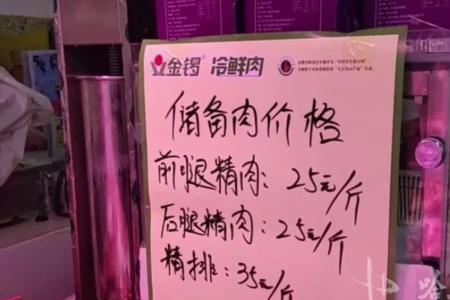 金锣 冷鲜肉
储备肉价格
前腿精肉：25元/斤
后腿精肉：25元/斤
精排：35元/斤